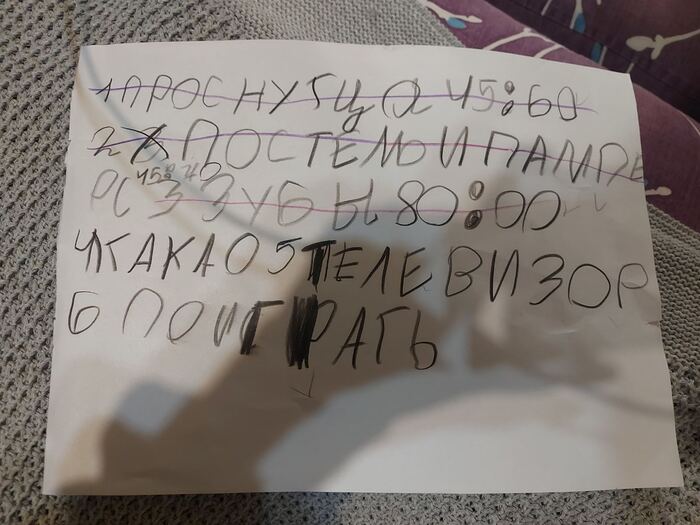 1 ПРОСНУТЦА 45:60
2 ПОСТЕЛЮ И ПАМПЕ
РС 3 ЗУБЫ 80:00
4 КАКАО 5 ТЕЛЕВИЗОР
6 ПОИГРАТЬ